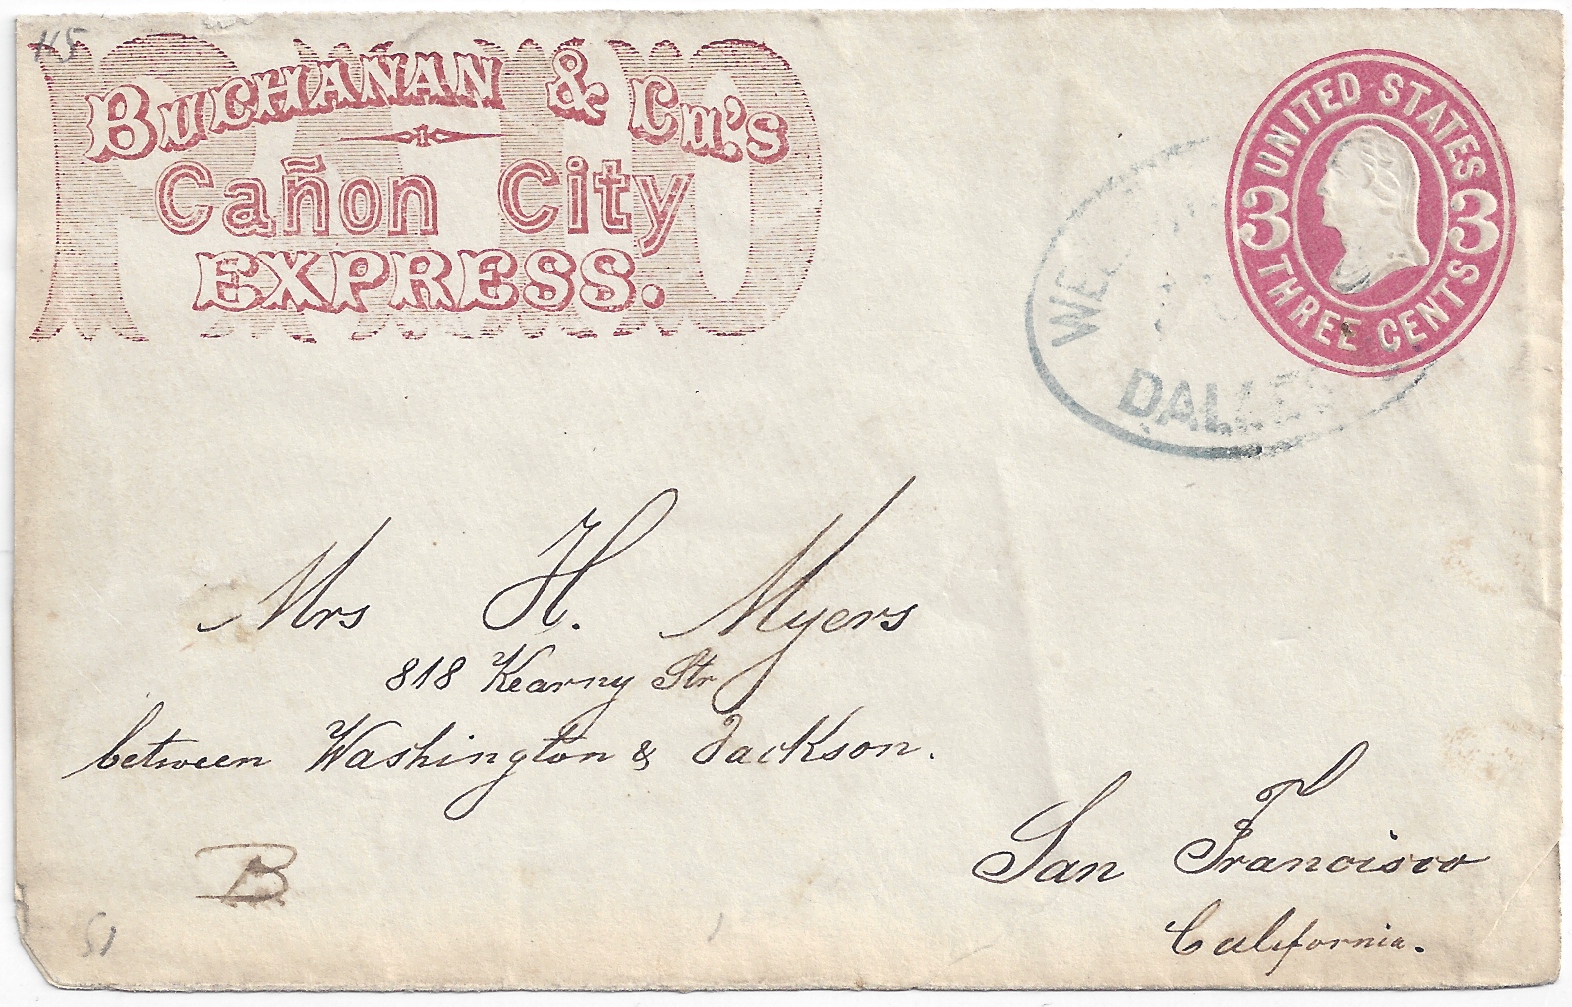 45
BUCHANAN & Co.'s
PAID
Cañon City
EXPRESS.
UNITED STATES
3 3
THREE CENTS
WE
DALLES
Mrs H. Myers
818 Kearny Str
between Washington & Jackson.
San Francisco
California.
B
51